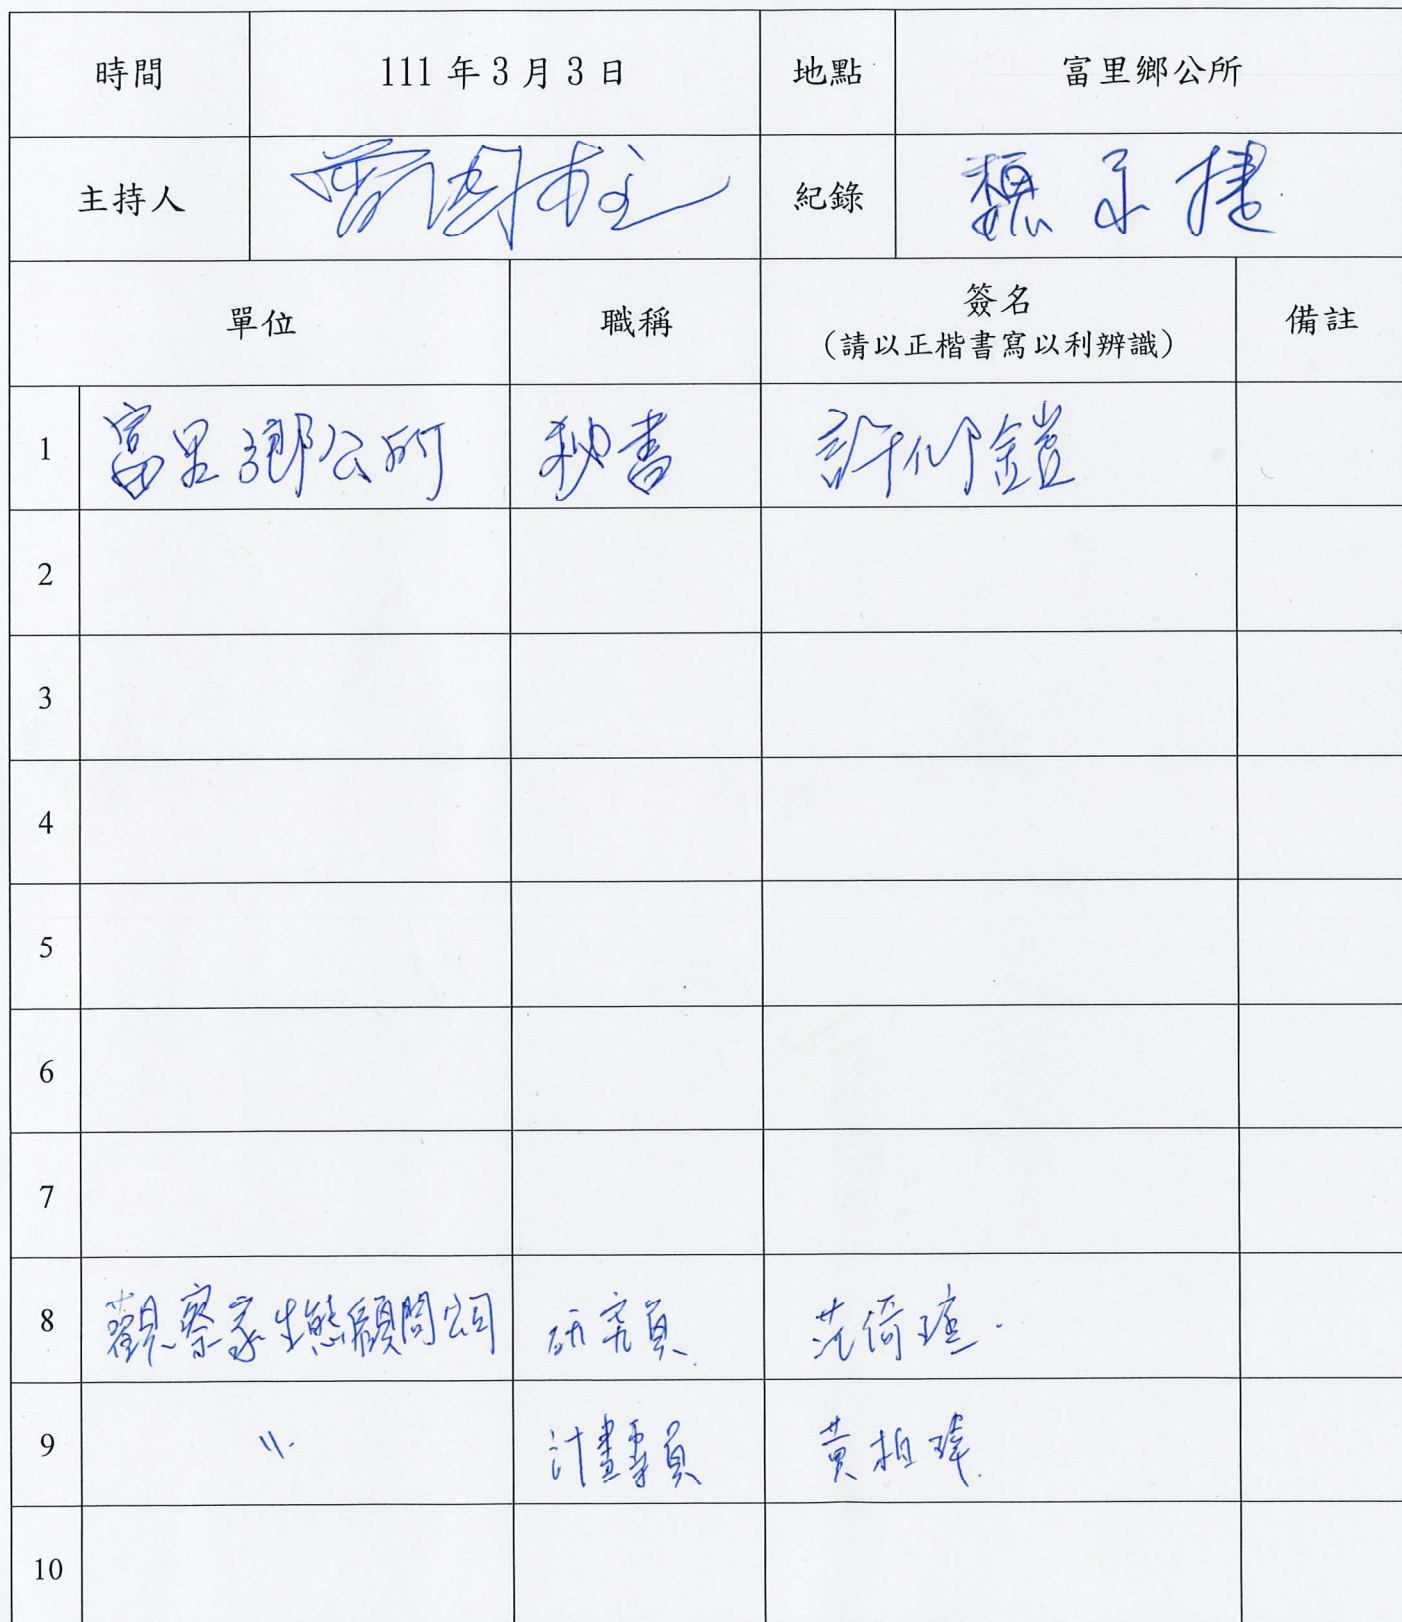 時間 111年3月3日 地點 富里鄉公所
主持人 紀錄 魏子捷
單位 職稱 簽名 備註
（請以正楷書寫以利辨識）
1 富里鄉公所 秘書 許仰鎧
2
3
4
5
6
7
8 觀察家生態顧問公司 研究員 范倚瑄
9 〃 計畫專員 黃柏瑋
10